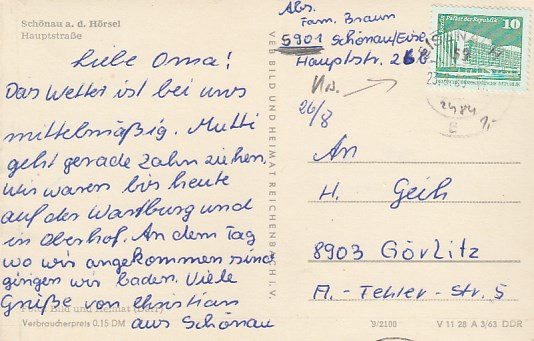 Schönau a. d. Hörsel
Hauptstraße
Liebe Oma!
Das Wetter ist bei uns
mittelmäßig. Mutti
geht gerade Zahn ziehen.
Wir waren bis heute
auf der Wartburg und
in Oberhof. An dem Tag
wo wir angekommen sind
gingen wir baden. Viele
Grüße von Christian
aus Schönau
Foto: Bild und Heimat
Verbraucherpreis 0,15 DM
VEB BILD UND HEIMAT REICHENBACH I. V.
Abs.
Fam. Braun
5901 Schönau/Eise
Hauptstr. 26
26/8
Palast der Republik 10
An
H. Geih
8903 Görlitz
A.-Fehler-Str. 5
B/2100
V 11 28 A 3/63 DDR